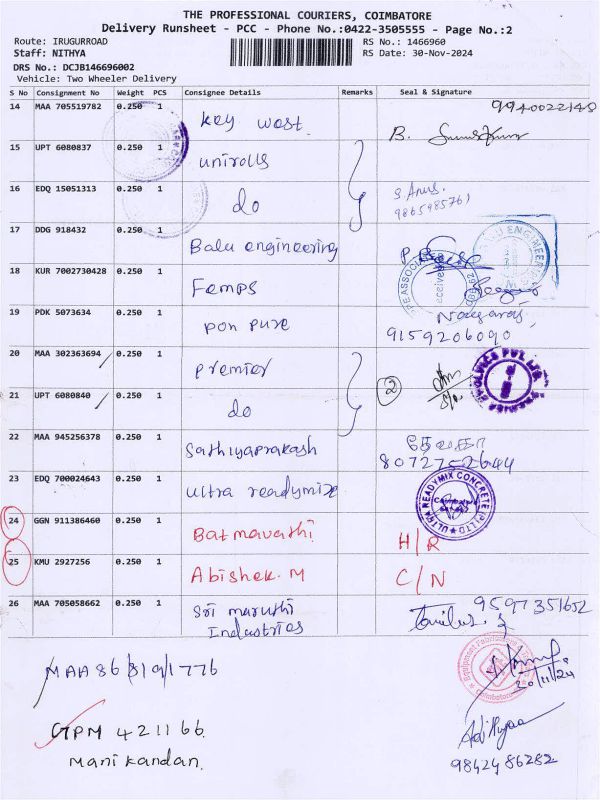 THE PROFESSIONAL COURIERS, COIMBATORE
Delivery Runsheet - PCC - Phone No.:0422-3505555 - Page No.:2
Route: IRUGURROAD RS No.: 1466960
Staff: NITHYA RS Date: 30-Nov-2024
DRS No.: DCJB146696002
Vehicle: Two Wheeler Delivery
S No Consignment No Weight PCS Consignee Details Remarks Seal & Signature
14 MAA 705519782 0.250 1 Key west 9940022148
15 UPT 6080837 0.250 1 unirolls
16 EDQ 15051313 0.250 1 do
9865985761
17 DDG 918432 0.250 1 Balu engineering
18 KUR 7002730428 0.250 1 Femps
19 PDK 5073634 0.250 1 pon pure Nagaraj
9159206090
20 MAA 302363694 0.250 1 premier 2
21 UPT 6080840 0.250 1 do
22 MAA 945256378 0.250 1 Sathiyaprakash
8072752644
23 EDQ 700024643 0.250 1 ultra readymix
ULTRA READYMIX CONCRETE (P) LTD
24 GGN 911386460 0.250 1 Batmavathi H/R
25 KMU 2927256 0.250 1 Abishek. M C/N
26 MAA 705058662 0.250 1 Sri maruthi Industries 9597351652
MAA 86/810/1776
30/11/24
GPM 421166
Mani kandan
9842486282